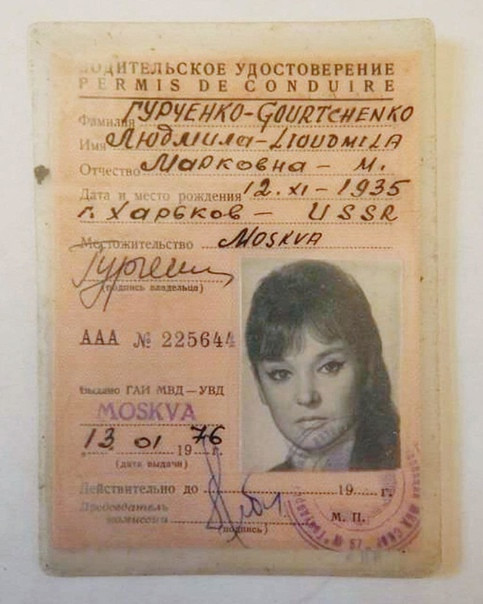 ВОДИТЕЛЬСКОЕ УДОСТОВЕРЕНИЕ
PERMIS DE CONDUIRE
Фамилия ГУРЧЕНКО-GOURTCHENKO
Имя Людмила-LIOUDMILA
Отчество Марковна - М.
Дата и место рождения 12.XI-1935
г. Харьков - USSR
Местожительство MOSKVA
Гурченко
(подпись владельца)
ААА № 225644
Выдано ГАИ МВД—УВД
MOSKVA
13 01 1976 г.
(дата выдачи)
Действительно до 19 г.
Председатель комиссии М. П.
(подпись)